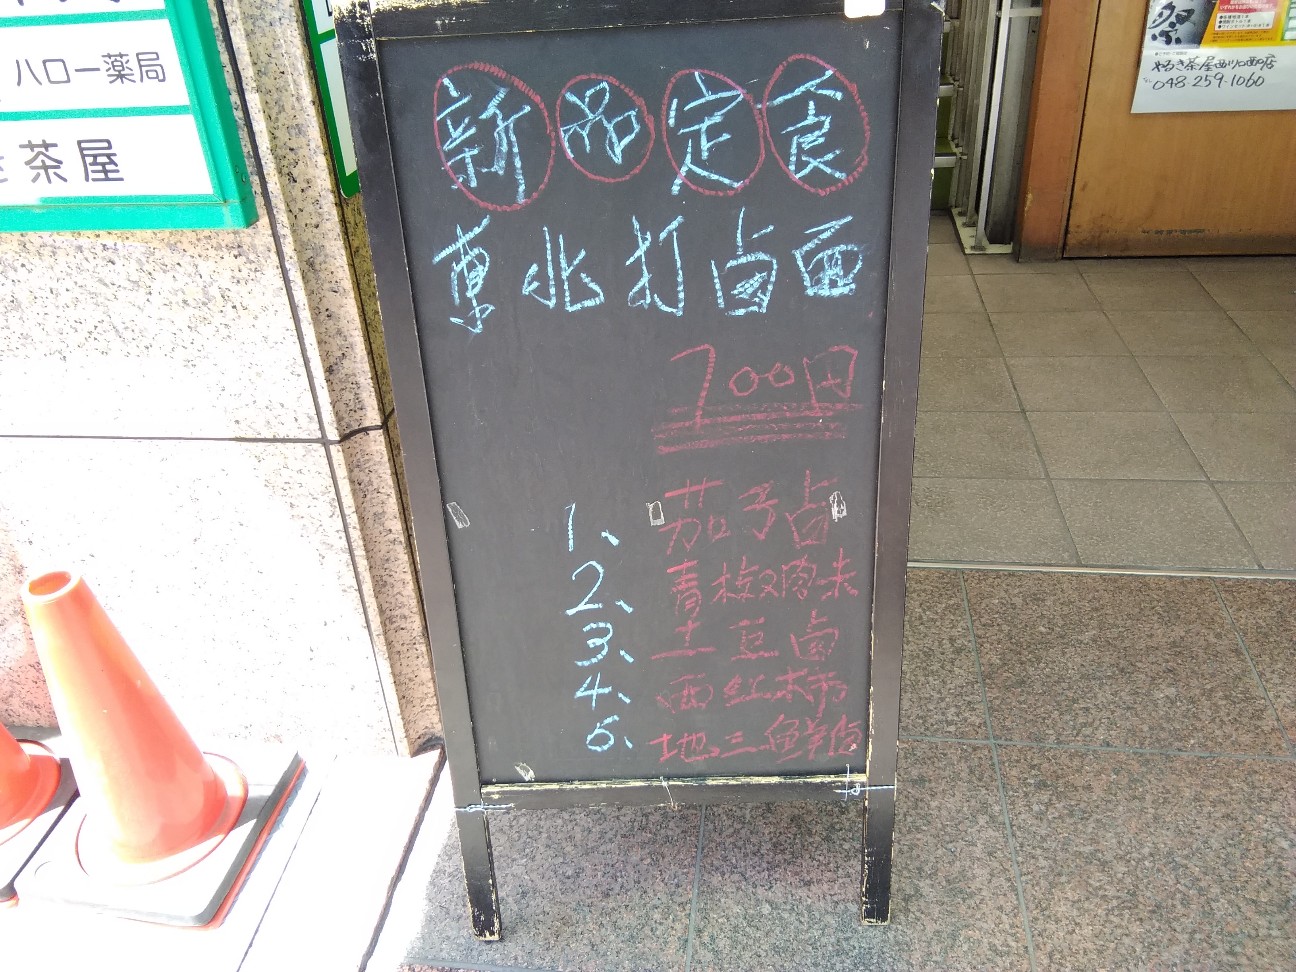 ハロー薬局
茶屋
祭
やるき茶屋西川口西口店
048-259-1060
新品定食
東北打卤面
700円
1、茄子卤
2、青椒肉未
3、土豆卤
4、西红柿
5、地三鲜卤